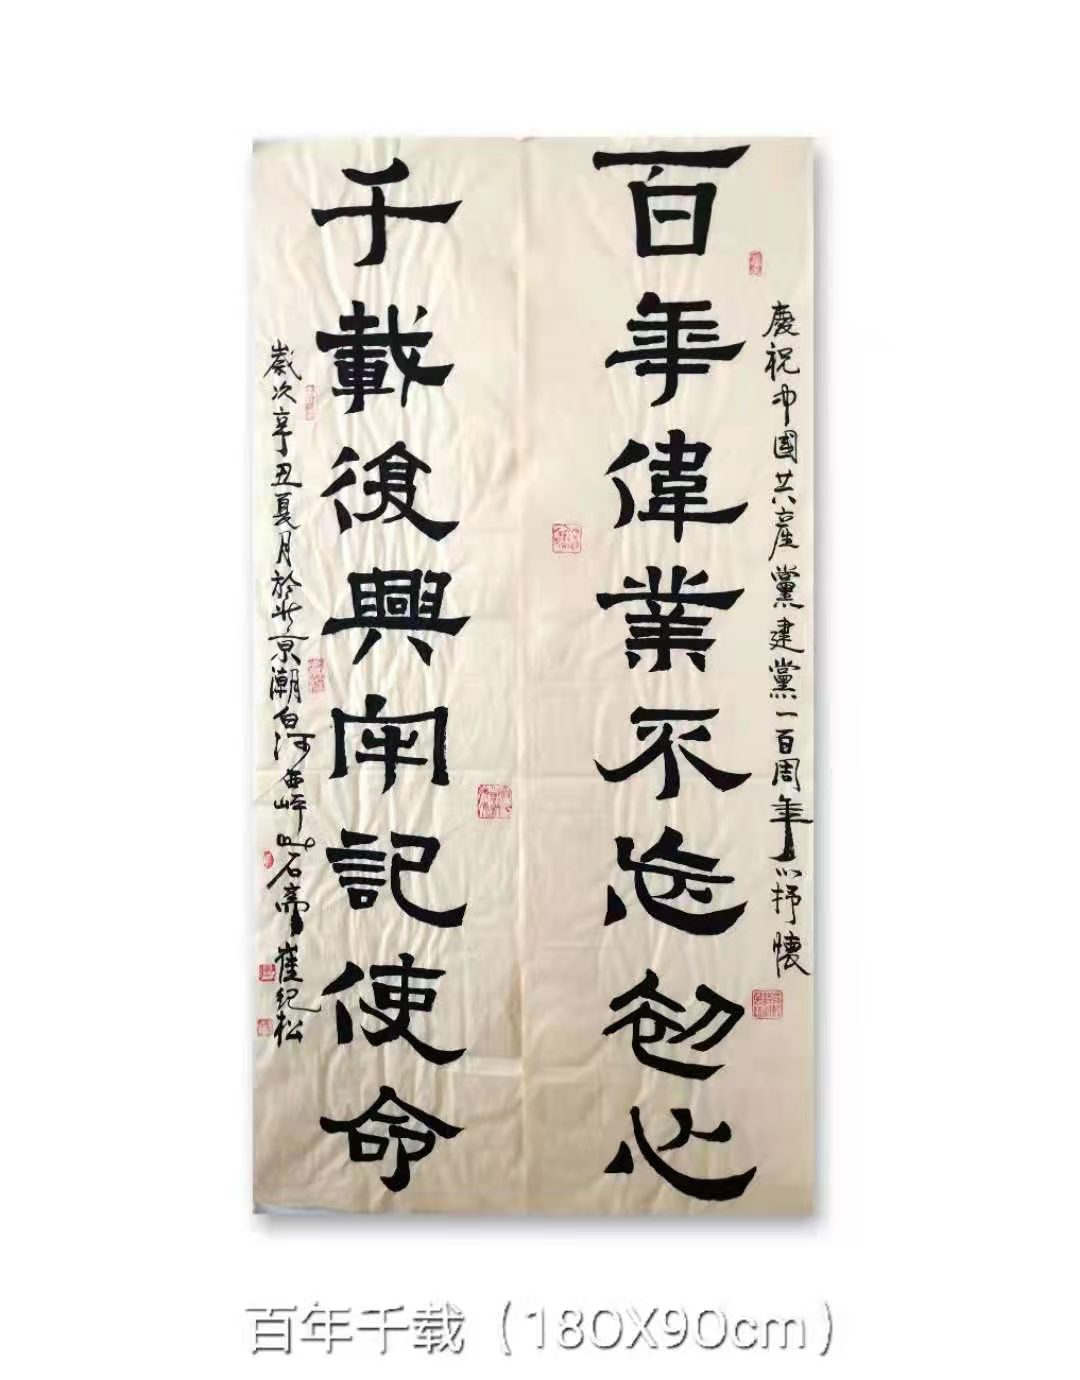 慶祝中國共産黨建黨一百周年以抒懷
百年偉業不忘初心
千載復興牢記使命
歲次辛丑夏月於北京潮白河西岸
石齋崔紀松
百年千载（180X90cm）